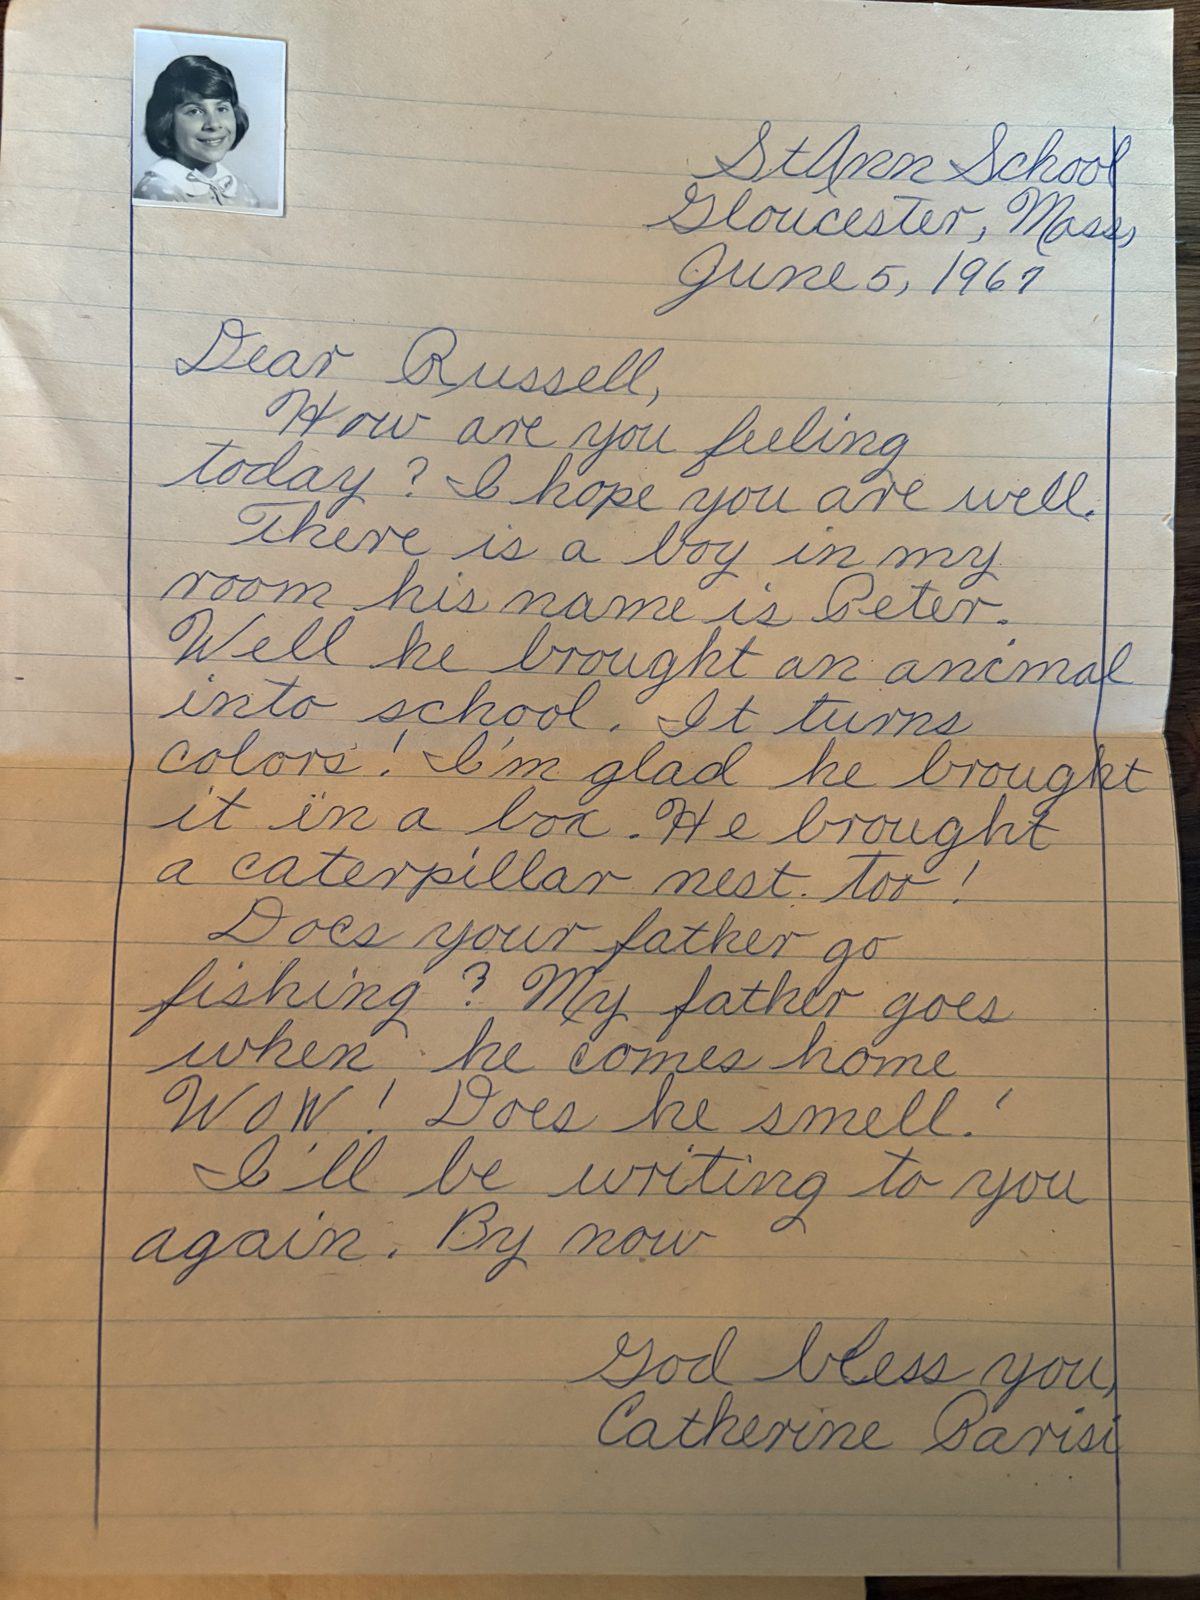 St Ann School
Gloucester, Mass,
June 5, 1967
Dear Russell,
How are you feeling
today? I hope you are well.
There is a boy in my
room his name is Peter.
Well he brought an animal
into school. It turns
colors! I'm glad he brought
it in a box. He brought
a caterpillar nest. too!
Does your father go
fishing? My father goes
when he comes home
WOW! Does he smell!
I'll be writing to you
again. By now
God bless you,
Catherine Parisi